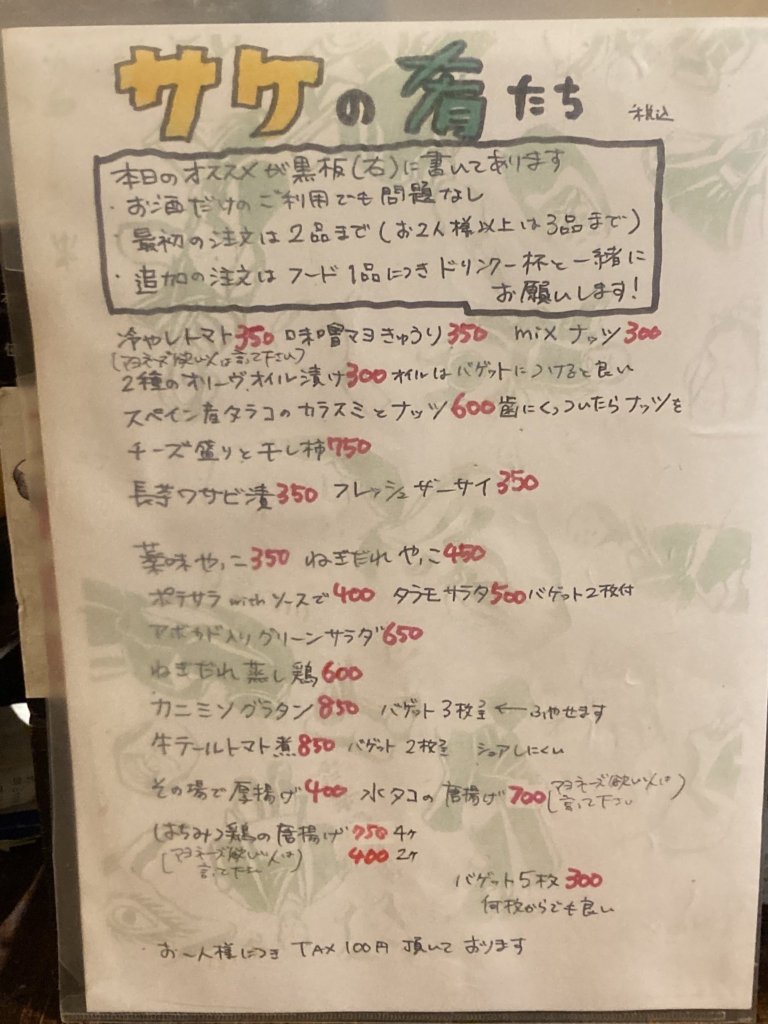 サケの肴たち 税込
本日のオススメが黒板(右)に書いてあります
・お酒だけのご利用でも問題なし
・最初の注文は2品まで(お2人様以上は3品まで)
・追加の注文はフード1品につきドリンク一杯と一緒に
お願いします!
冷やしトマト350 味噌マヨきゅうり350 mixナッツ300
(マヨネーズ欲しい人は言って下さい)
2種のオリーヴオイル漬け300 オイルはバゲットにつけると良い
スペイン産タラコのカラスミとナッツ600 歯にくっついたらナッツを
チーズ盛りと干し柿750
長芋ワサビ漬350 フレッシュザーサイ350
薬味やっこ350 ねぎだれやっこ450
ポテサラwithソースで400 タラモサラダ500 バゲット2枚付
アボカド入りグリーンサラダ650
ねぎだれ蒸し鶏600
カニミソグラタン850 バゲット3枚 ← ふやせます
牛テールトマト煮850 バゲット2枚 シェアしにくい
その場で厚揚げ400 水タコの唐揚げ700 (マヨネーズ欲しい人は
言って下さい)
はちみつ鶏の唐揚げ750 4ケ
(マヨネーズ欲しい人は 400 2ケ
言って下さい)
バゲット5枚300
何枚からでも良い
お一人様につきTAX100円頂いております